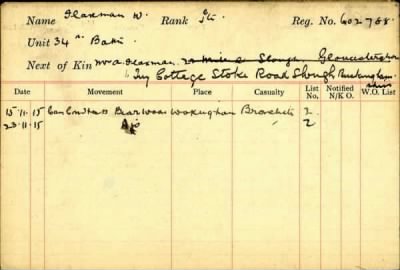 Name Flaxman W. Rank Pte Reg. No. 602788.
Unit 34th Batt.
Next of Kin Mr A. Flaxman. Slough, Gloucestershire
Ivy Cottage Stoke Road Slough Buckingham-
shire
Date Movement Place Casualty List No. Notified N/K O. W.O. List
15.11.15 Can Con Hosp Bear Wood Wokingham Bronchitis 2.
23.11.15 Dis 2